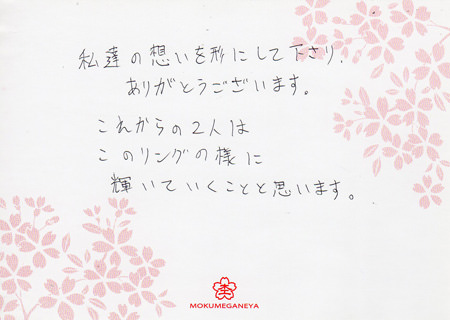 私達の想いを形にして下さり、
ありがとうございます。
これからの2人は
このリングの様に
輝いていくことと思います。
杢
MOKUMEGANEYA